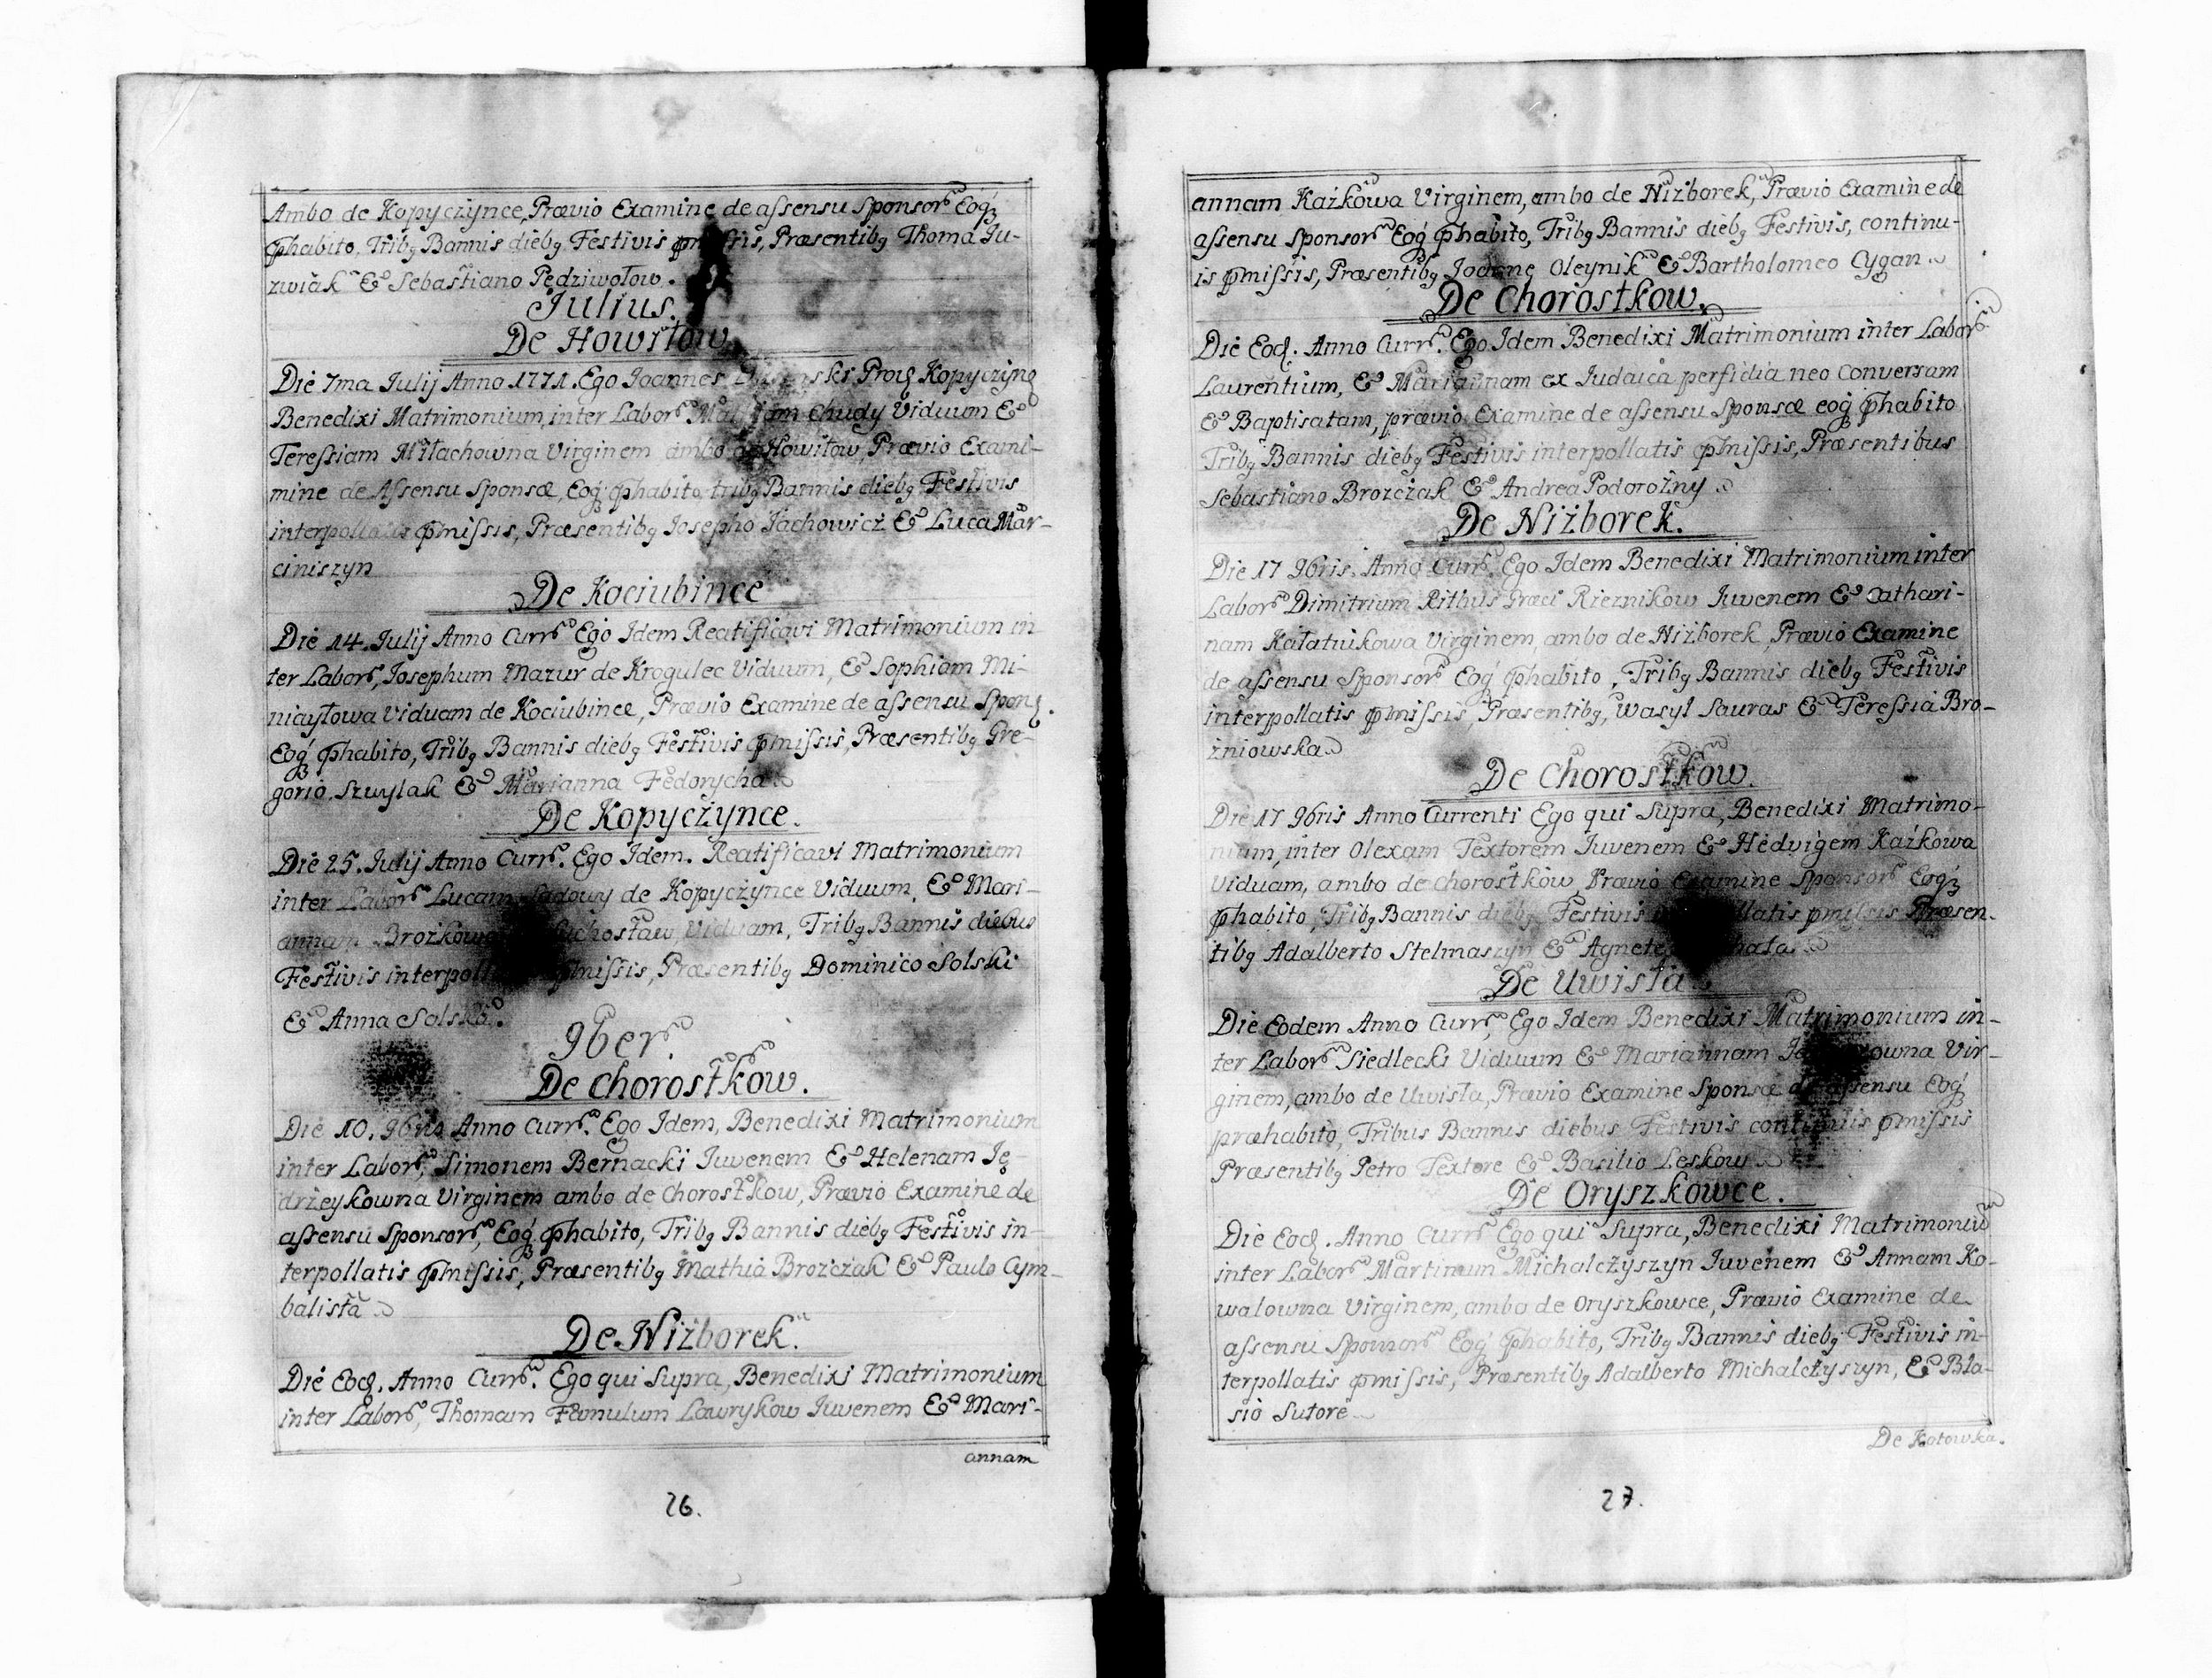 Ambo de Kopyczynce, Prævio Examine de assensu Sponsor Eoq
phabito, Tribq Bannis diebq Festivis, Præsentibq Thoma Ju-
zwiak & Sebastiano Pędziwołow.
Julius.
De Howiłow
Die 7ma Julij Anno 1771. Ego Joannes Proq Kopyczynq
Benedixi Matrimonium, inter Labors Chudy Viduum &
Teressiam Miłachowna Virginem ambo de Howiłow, Prævio Exami-
mine de Assensu Sponsæ, Eoq phabito, tribq Bannis diebq Festivis
interpollatis pmissis, Præsentibq Josepho Jachowicz & Luca Mar-
ciniszyn
De Kociubince
Die 14. Julij Anno Curr. Ego Idem Reatificavi Matrimonium in
ter Labors, Josephum Mazur de Krogulec Viduum, & Sophiam Mi-
niayłowa Viduam de Kociubince, Prævio Examine de assensu Spons.
Eoq phabito, Tribq Bannis diebq Festivis pmissis, Præsentibq Gre-
gorio Szwylak & Marianna Fedorycha
De Kopyczynce.
Die 25. Julij Anno Curr. Ego Idem. Reatificavi Matrimonium
inter Labors Lucam Sadowy de Kopyczynce Viduum, & Mari-
annam Brozkowa Viduam, Tribq Bannis diebus
Festivis pmissis, Præsentibq Dominico Solski
& Anna Solska.
9ber.
De Chorostkow.
Die 10. 9bris Anno Curr. Ego Idem, Benedixi Matrimonium
inter Labors, Simonem Bernacki Juvenem & Helenam Ję-
drzeykowna Virginem ambo de Chorostkow, Prævio Examine de
assensu Sponsor, Eoq phabito, Tribq Bannis diebq Festivis in-
terpollatis pmissis, Præsentibq Mathia Brozczak & Paulo Cym-
balista
De Niżborek.
Die Eod. Anno Curr. Ego qui Supra, Benedixi Matrimonium
inter Labors, Thomam Famulum Lawrykow Juvenem & Mari-
annam
26.
annam Kaźkowa Virginem, ambo de Niżborek, Prævio Examine de
assensu Sponsor Eoq phabito, Tribq Bannis diebq Festivis, continu-
is pmissis, Præsentibq Joanne Oleynik & Bartholomeo Cygan
De Chorostkow.
Die Eod. Anno Curr. Ego Idem Benedixi Matrimonium inter Labors
Laurentium, & Mariannam ex Judaica perfidia neo Conversam
& Baptisatam, prævio Examine de assensu Sponsæ eoq phabito
Tribq Bannis diebq Festivis interpollatis pmissis, Præsentibus
Sebastiano Brozczak & Andrea Podorożny
De Niżborek.
Die 17 9bris. Anno Curr. Ego Idem Benedixi Matrimonium inter
Labors Dimitrium Rithus Græci Rieznikow Juvenem & Cathari-
nam Kałatukowa Virginem, ambo de Niżborek, Prævio Examine
de assensu Sponsor Eoq phabito, Tribq Bannis diebq Festivis
interpollatis pmissis, Præsentibq, Wasyl Sauras & Teressia Bro-
zniowska
De Chorostkow.
Die 17 9bris Anno Currenti Ego qui Supra, Benedixi Matrimo-
nium, inter Olexam Textorem Juvenem & Hedvigem Kaźkowa
Viduam, ambo de Chorostkow, Prævio Examine Sponsor Eoq
phabito, Tribq Bannis diebq Festivis pmissis Præsen-
tibq Adalberto Stelmaszyn & Agnete
De Uwisła
Die Eodem Anno Curr. Ego Idem Benedixi Matrimonium in-
ter Labors Siedlecki Viduum & Mariannam Vir-
ginem, ambo de Uwisła, Prævio Examine Sponsæ de assensu Eoq
præhabito, Tribus Bannis diebus Festivis continuis pmissis
Præsentibq Petro Textore & Basilio Leskow
De Oryszkowce.
Die Eod. Anno Curr Ego qui Supra, Benedixi Matrimoniu
inter Labors Martinum Michalczyszyn Juvenem & Annam Ko-
walowna Virginem, ambo de Oryszkowce, Prævio Examine de
assensu Sponsor Eoq phabito, Tribq Bannis diebq Festivis in-
terpollatis pmissis, Præsentibq Adalberto Michalczyszyn, & Bla-
sio Sutore
De Kotowka.
27.